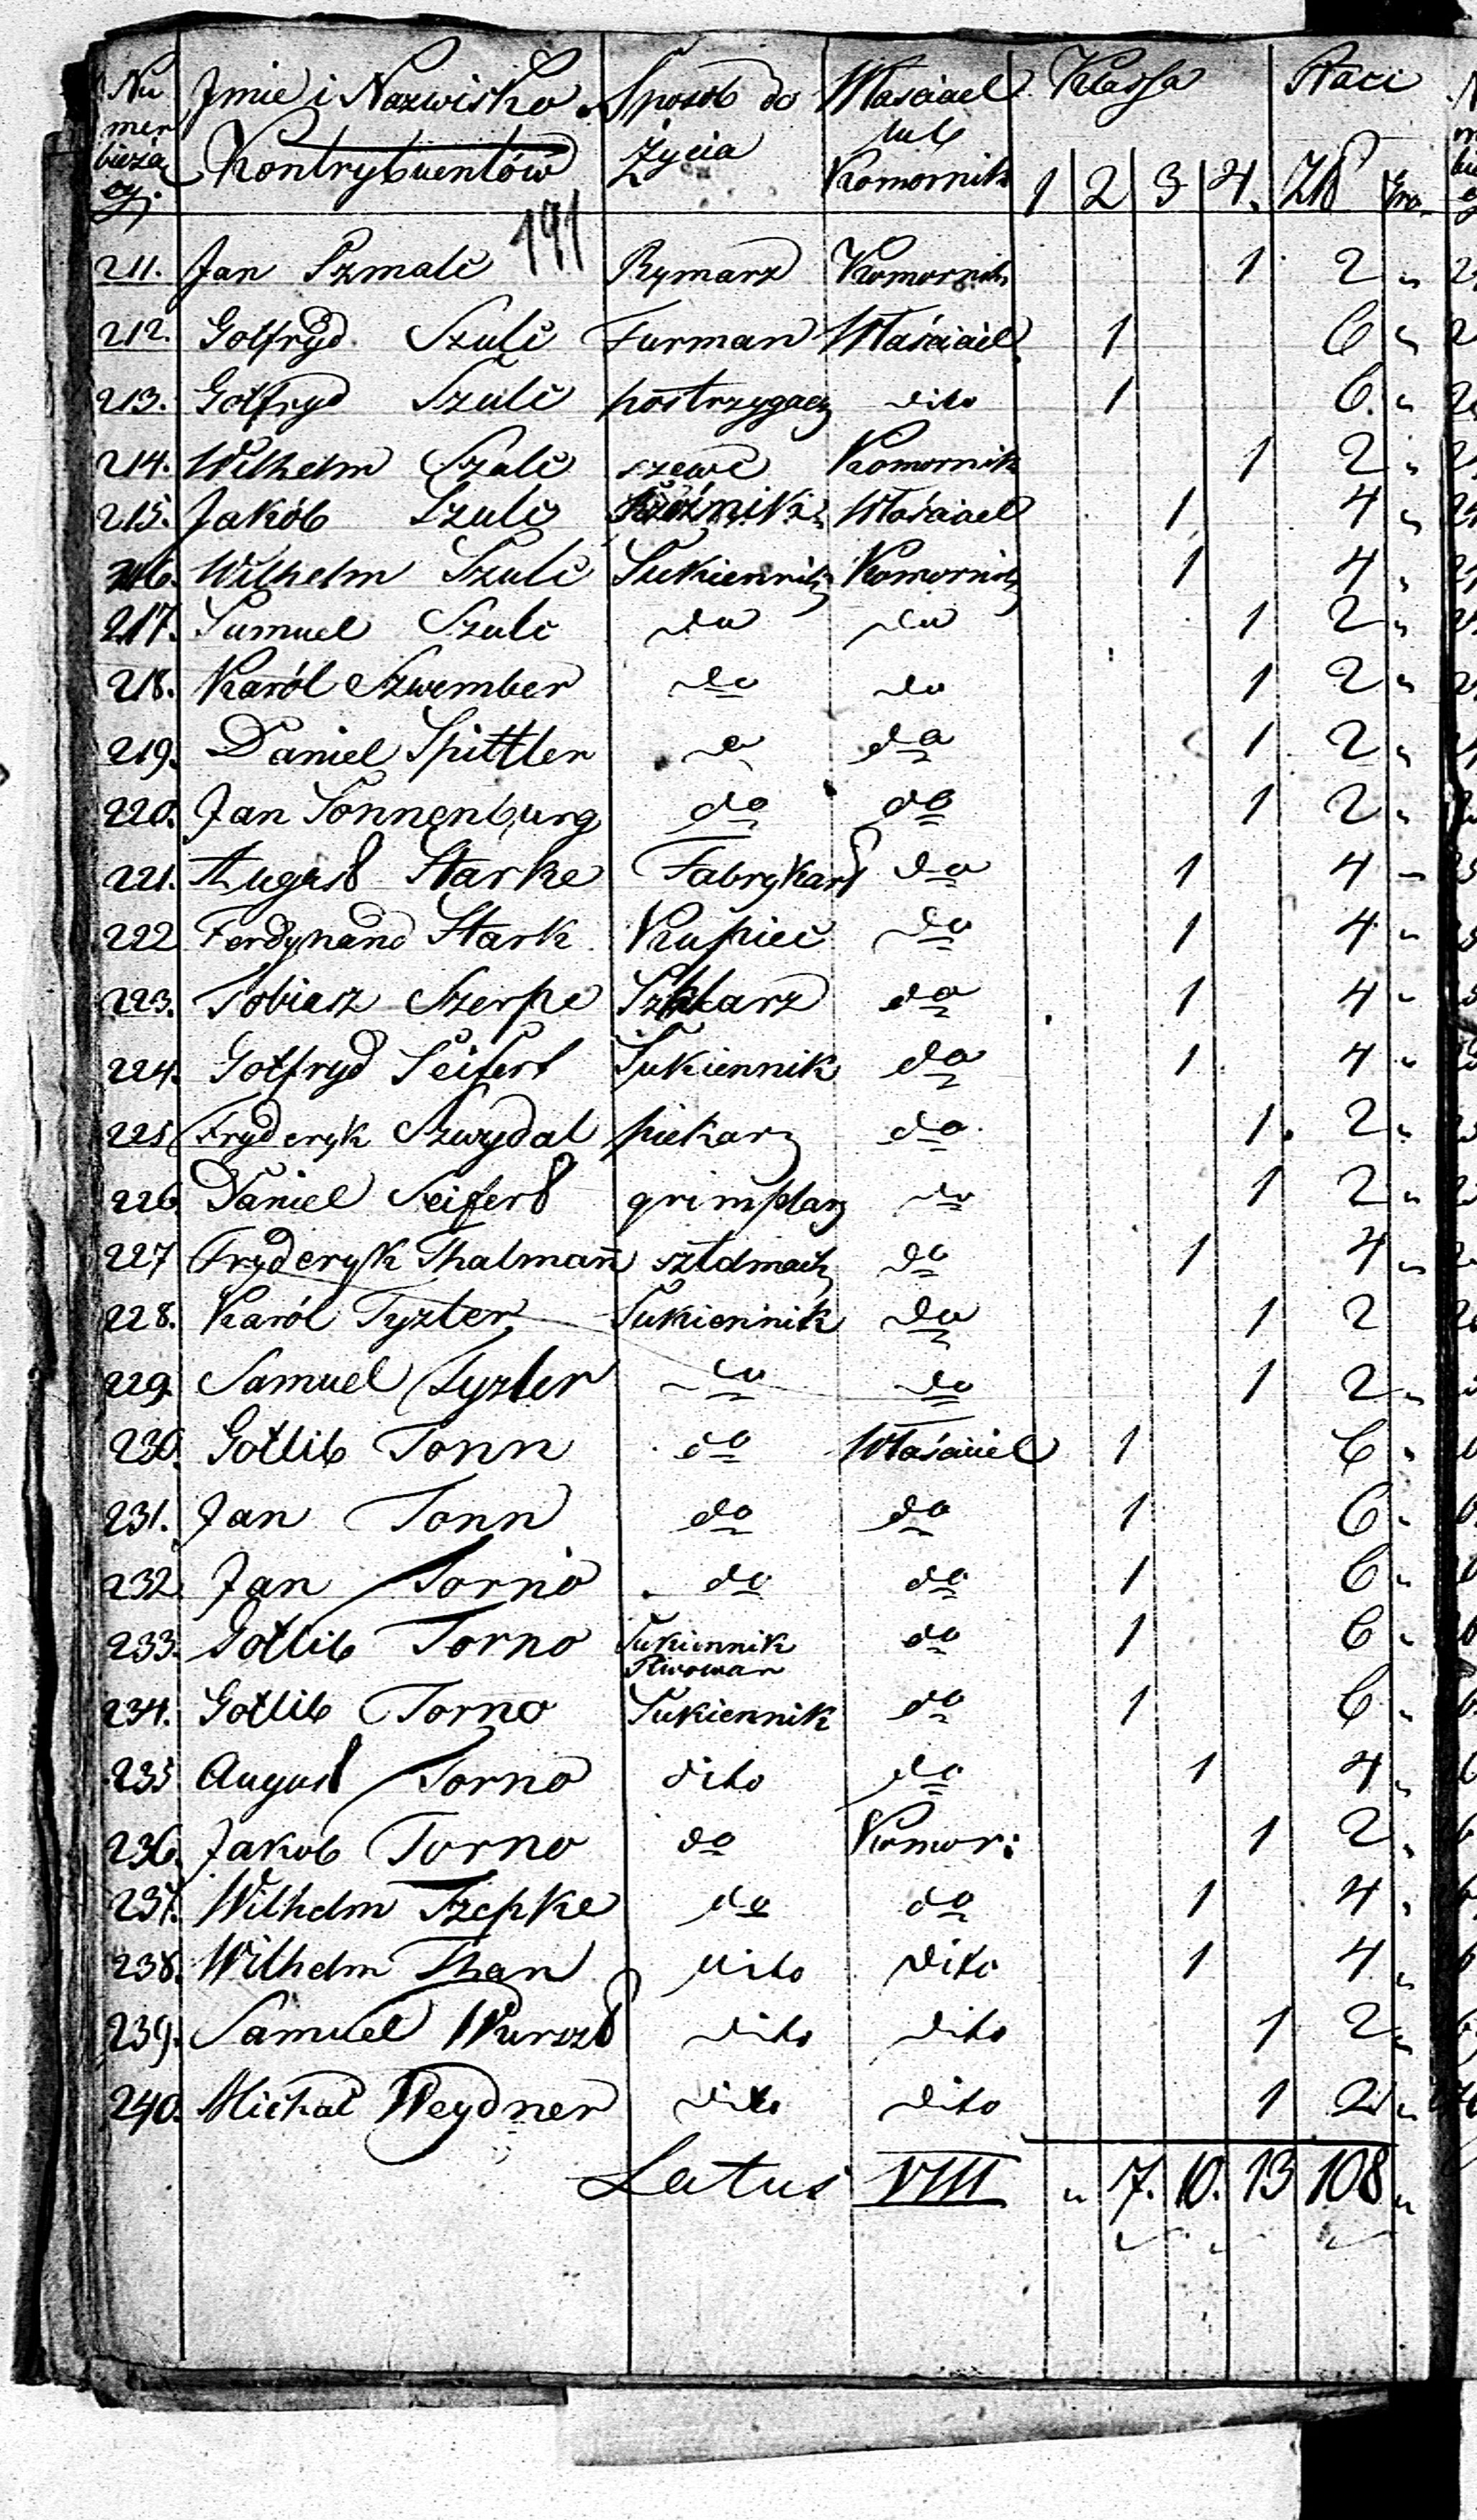 Nu mer bieżą cy. Jmie i Nazwisko Kontrybuentów Sposob do Życia Właściciel lub Komornik Klassa 1 2 3 4. Płaci Zł gro.
191
211. Jan Szmalc Rymarz Komornik 1 2 "
212. Gotfryd Szulc Furman Właściciel 1 6 "
213. Gotfryd Szulc postrzygacz dito 1 6. "
214. Wilhelm Szulc szewc Komornik 1 2 "
215. Jakób Szulc Właściciel 1 4 "
216. Wilhelm Szulc Sukiennik Komornik 1 4 "
217. Samuel Szulc do do 1 2 "
218. Karól Szwember do do 1 2 "
219. Daniel Spittler do do 1 2 "
220. Jan Sonnenburg do do 1 2 "
221. August Starke Fabrykant do 1 4 "
222 Ferdynand Stark Kupiec do 1 4 "
223. Tobiasz Szerpe Szklarz do 1 4 "
224. Gotfryd Seifert Sukiennik do 1 4 "
225 Fryderyk Szwydal piekarz do 1. 2 "
226 Daniel Seifert grimplarz do 1 2 "
227 Fryderyk Thalmañ sztelmach do 1 4 "
228. Karól Tyzler Sukiennik do 1 2
229. Samuel Tyzler do do 1 2 "
230. Gotlib Tonn do Właściciel 1 6 "
231. Jan Tonn do do 1 6 "
232. Jan Torno do do 1 6 "
233. Gotlib Torno Sukiennik Piwowar do 1 6 "
234. Gotlib Torno Sukiennik do 1 6 "
235 August Torno dito do 1 4 "
236. Jakob Torno do Komor: 1 2 "
237. Wilhelm Tzepke do do 1 4 "
238. Wilhelm Than dito dito 1 4 "
239. Samuel Wurszt dito dito 1 2 "
240. Michał Weydner dito dito 1 2 "
Latus VIII " 7. 10. 13 108 "